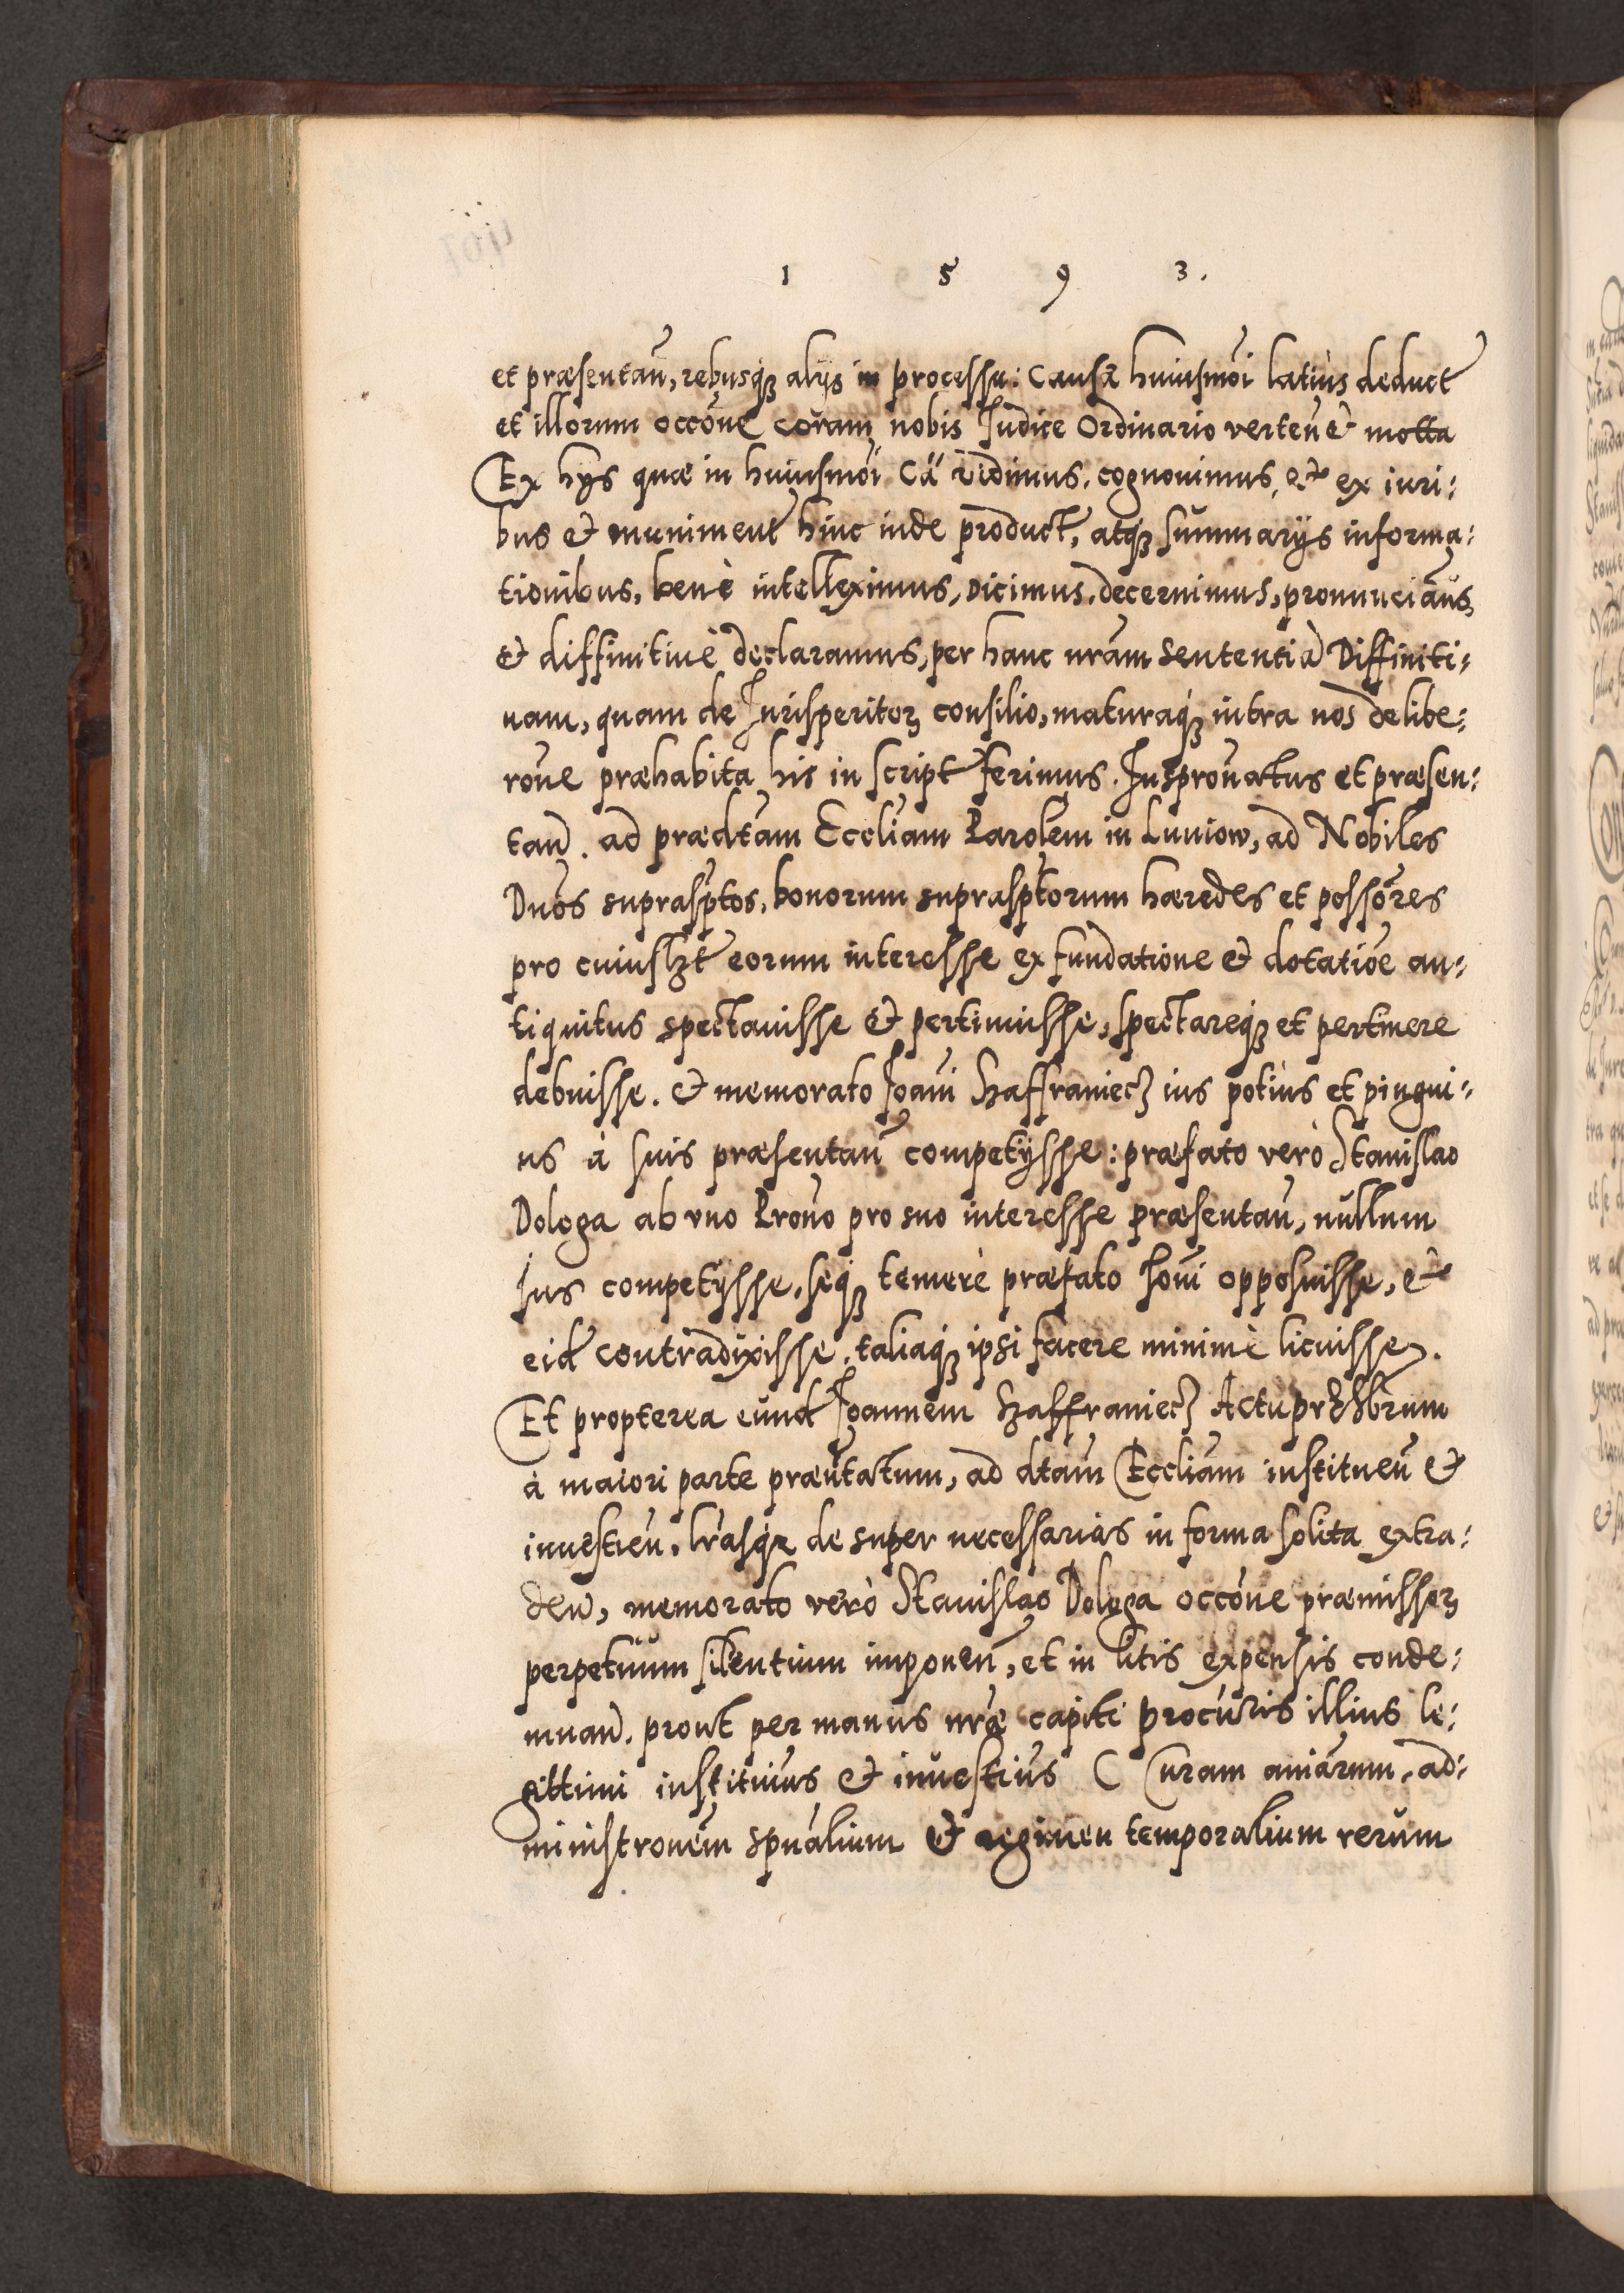 1 5 9 3.
et præsentan̄, rebusq; alijs in processu: Causæ huiusmōi latius deduct
et illorum occōne coram nobis Iudice Ordinario verten̄ & motta
Ex hijs quæ in huiusmōi Cā vidimus, cognouimus, & ex iuri:
bus & muniment hinc inde product, atq; summarijs informa:
tionibus, benè intelleximus, Dicimus, decernimus, pronunciam̄us,
& diffinitiuè declaramus, per hanc nr̄am sententiā Diffiniti:
uam, quam de Iurisperitoꝝ consilio, maturaq; intra nos delibe:
rōne præhabita his in script ferimus. Iusprōnatus et præsen:
tan̄. ad prædtam Eccliam Parolem in Luniow, ad Nobiles
Dnōs suprasptos, bonorum suprasptorum hæredes et possōres
pro cuiuslzt eorum interesse ex fundatione & dotatiōe an:
tiquitus spectauisse & pertinuisse, spectareq; et pertinere
debuisse. & memorato Joani Szaffraniecz ius potius et pingui:
us à suis præsentan̄ competijsse: præfato verò Stanislao
Dologa ab vno Prōno pro suo interesse præsentan̄, nullum
Ius competijsse, seq; temerè præfato Joni opposuisse, &
eid contradixisse, taliaq; ipsi facere minimè licuisse.
Et propterea eund Joannem Szaffraniecz Actu præsbrum
à maiori parte præntatum, ad dtam Eccliam instituen̄ &
inuestien̄, lrasq; de super necessarias in forma solita extra:
den̄, memorato verò Stanislao Dologa occōne præmissoꝝ
perpetuum silentium imponen̄, et in litis expensis conde:
mnan̄. prout per manus nræ capiti procuris illius le:
gittimi instituim̄us & inuestim̄us Curam aniarum, ad:
ministronem spualium & regimen temporalium rerum